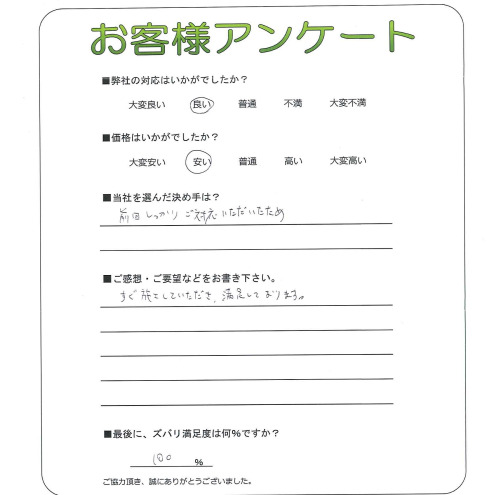 お客様アンケート
■弊社の対応はいかがでしたか？
大変良い 良い 普通 不満 大変不満
■価格はいかがでしたか？
大変安い 安い 普通 高い 大変高い
■当社を選んだ決め手は？
前回しっかりご対応いただいたため
■ご感想・ご要望などをお書き下さい。
すぐ施工していただき、満足しております。
■最後に、ズバリ満足度は何％ですか？
100 ％
ご協力頂き、誠にありがとうございました。